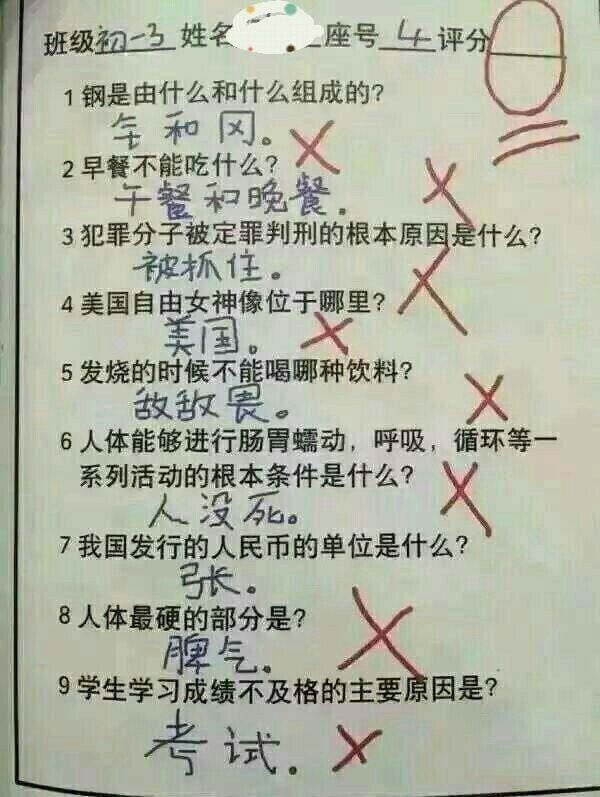 班级初一3 姓名 座号 4 评分 0
1 钢是由什么和什么组成的?
钅和冈。
2 早餐不能吃什么?
午餐和晚餐.
3 犯罪分子被定罪判刑的根本原因是什么?
被抓住。
4 美国自由女神像位于哪里?
美国。
5 发烧的时候不能喝哪种饮料?
敌敌畏。
6 人体能够进行肠胃蠕动，呼吸，循环等一
系列活动的根本条件是什么?
人没死。
7 我国发行的人民币的单位是什么?
张。
8 人体最硬的部分是?
脾气.
9 学生学习成绩不及格的主要原因是?
考试.